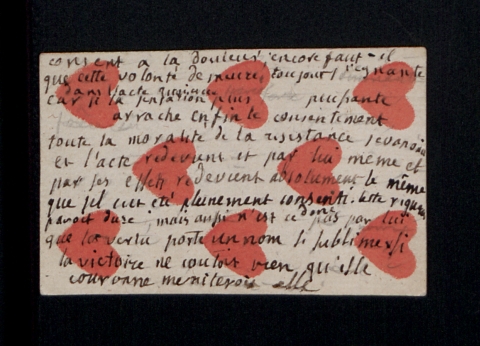 consent a la douleur encore faut-il
que cette volonté de mourir toujours regnante
dans l'acte
car si la tentation plus puissante
arrache enfin le consentement
toute la moralité de la resistance
et l'acte redevient et par lui même et
par ses effets redevient absolument le même
que s'il eut été pleinement consenti. cette rigueur
paroit dure, mais aussi n'est ce donc pas par lui
que la vertu porte un nom si sublime si
la victoire ne coutoit rien quelle
couronne meriteroit elle